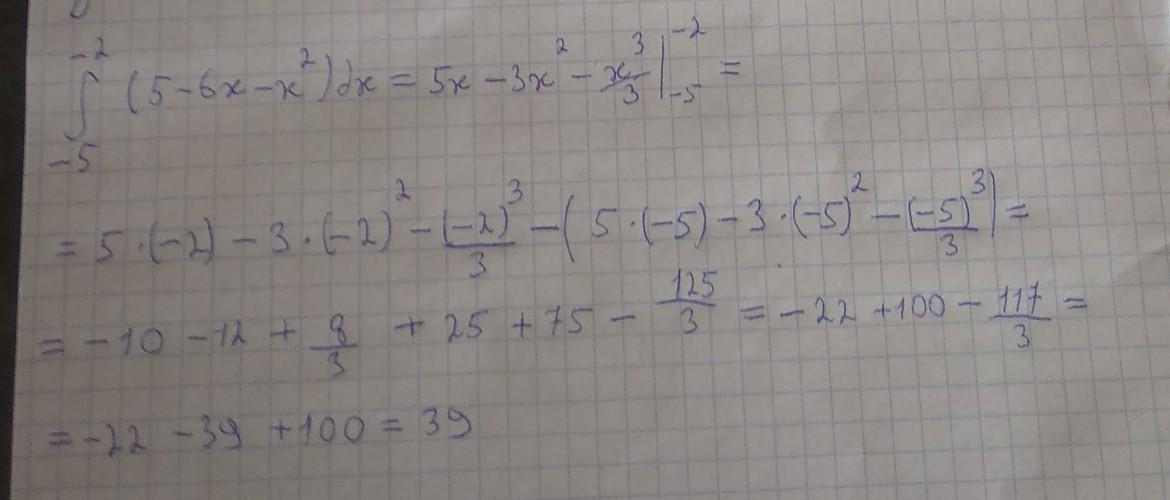 ∫_{-5}^{-2} (5-6x-x²)dx = 5x-3x²-x³/3 |_{-5}^{-2} =
= 5·(-2)-3·(-2)²-(-2)³/3-(5·(-5)-3·(-5)²-(-5)³/3)=
= -10-12+8/3+25+75-125/3=-22+100-117/3=
=-22-39+100=39